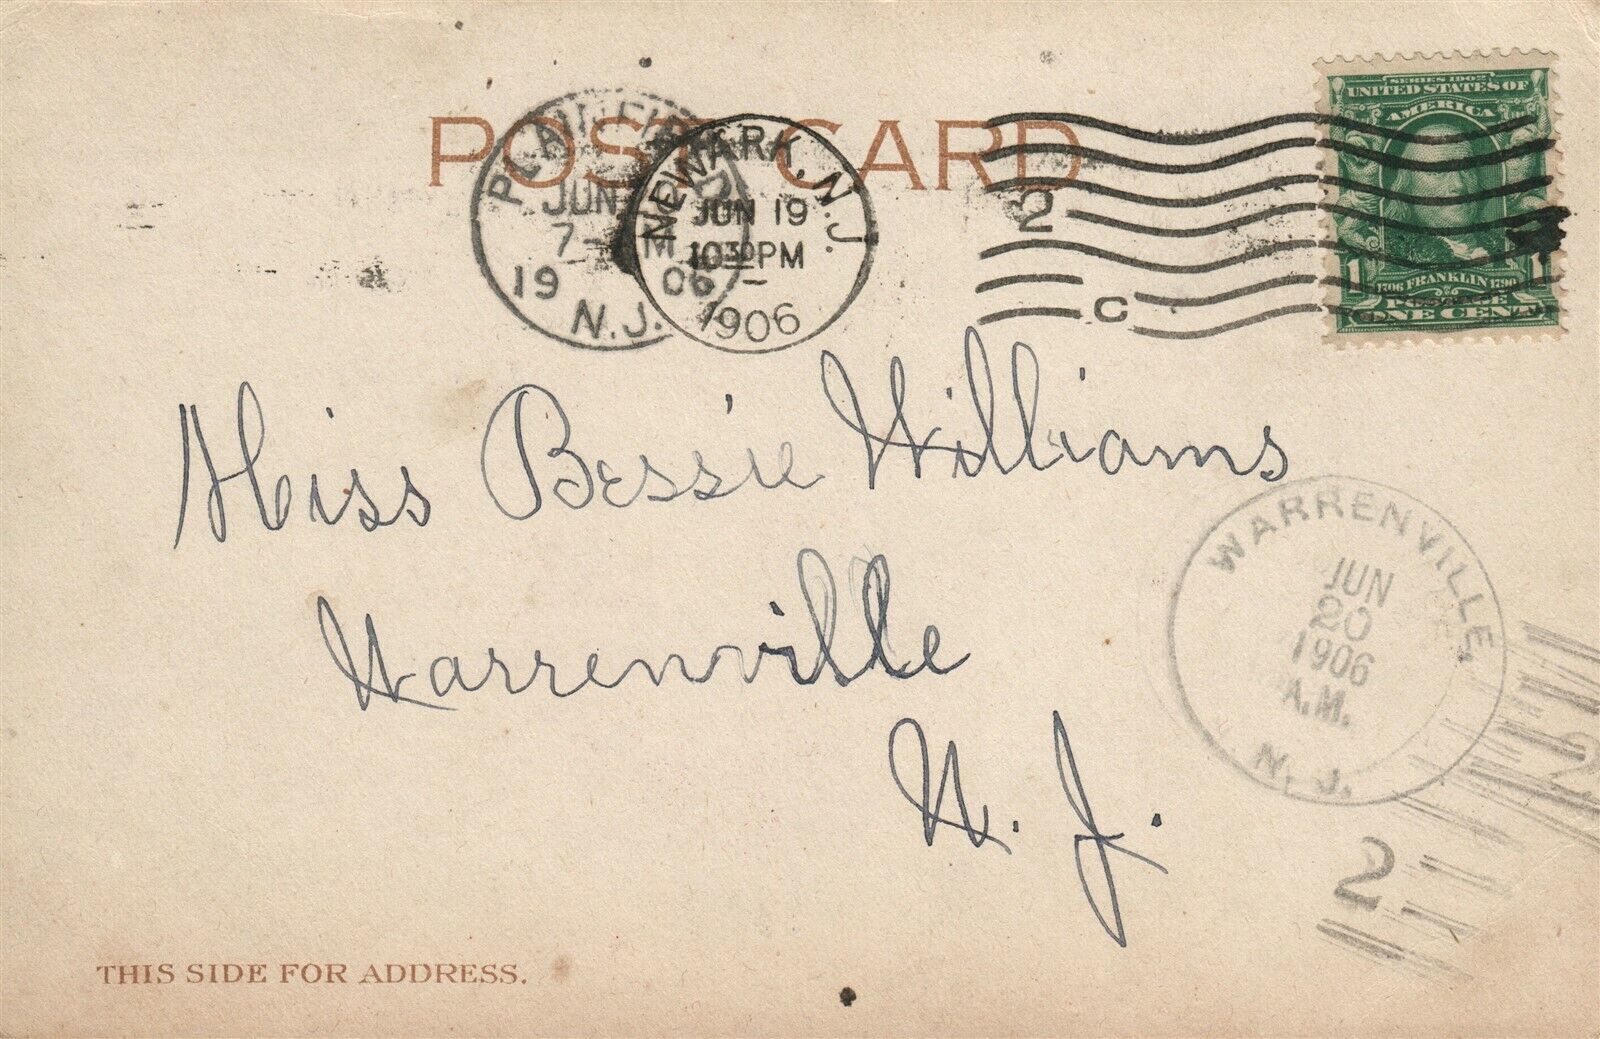 POST CARD
PLAINFIELD
JUN
7- M
19 06
N.J.
NEWARK, N.J.
JUN 19
10 30 PM
1906
2
C
SERIES 1902
UNITED STATES OF
AMERICA
1 1706 FRANKLIN 1790 1
POSTAGE
ONE CENT
Miss Bessie Williams
Warrenville
N. J.
WARRENVILLE,
JUN
20
1906
A.M.
N. J.
2
2
THIS SIDE FOR ADDRESS.